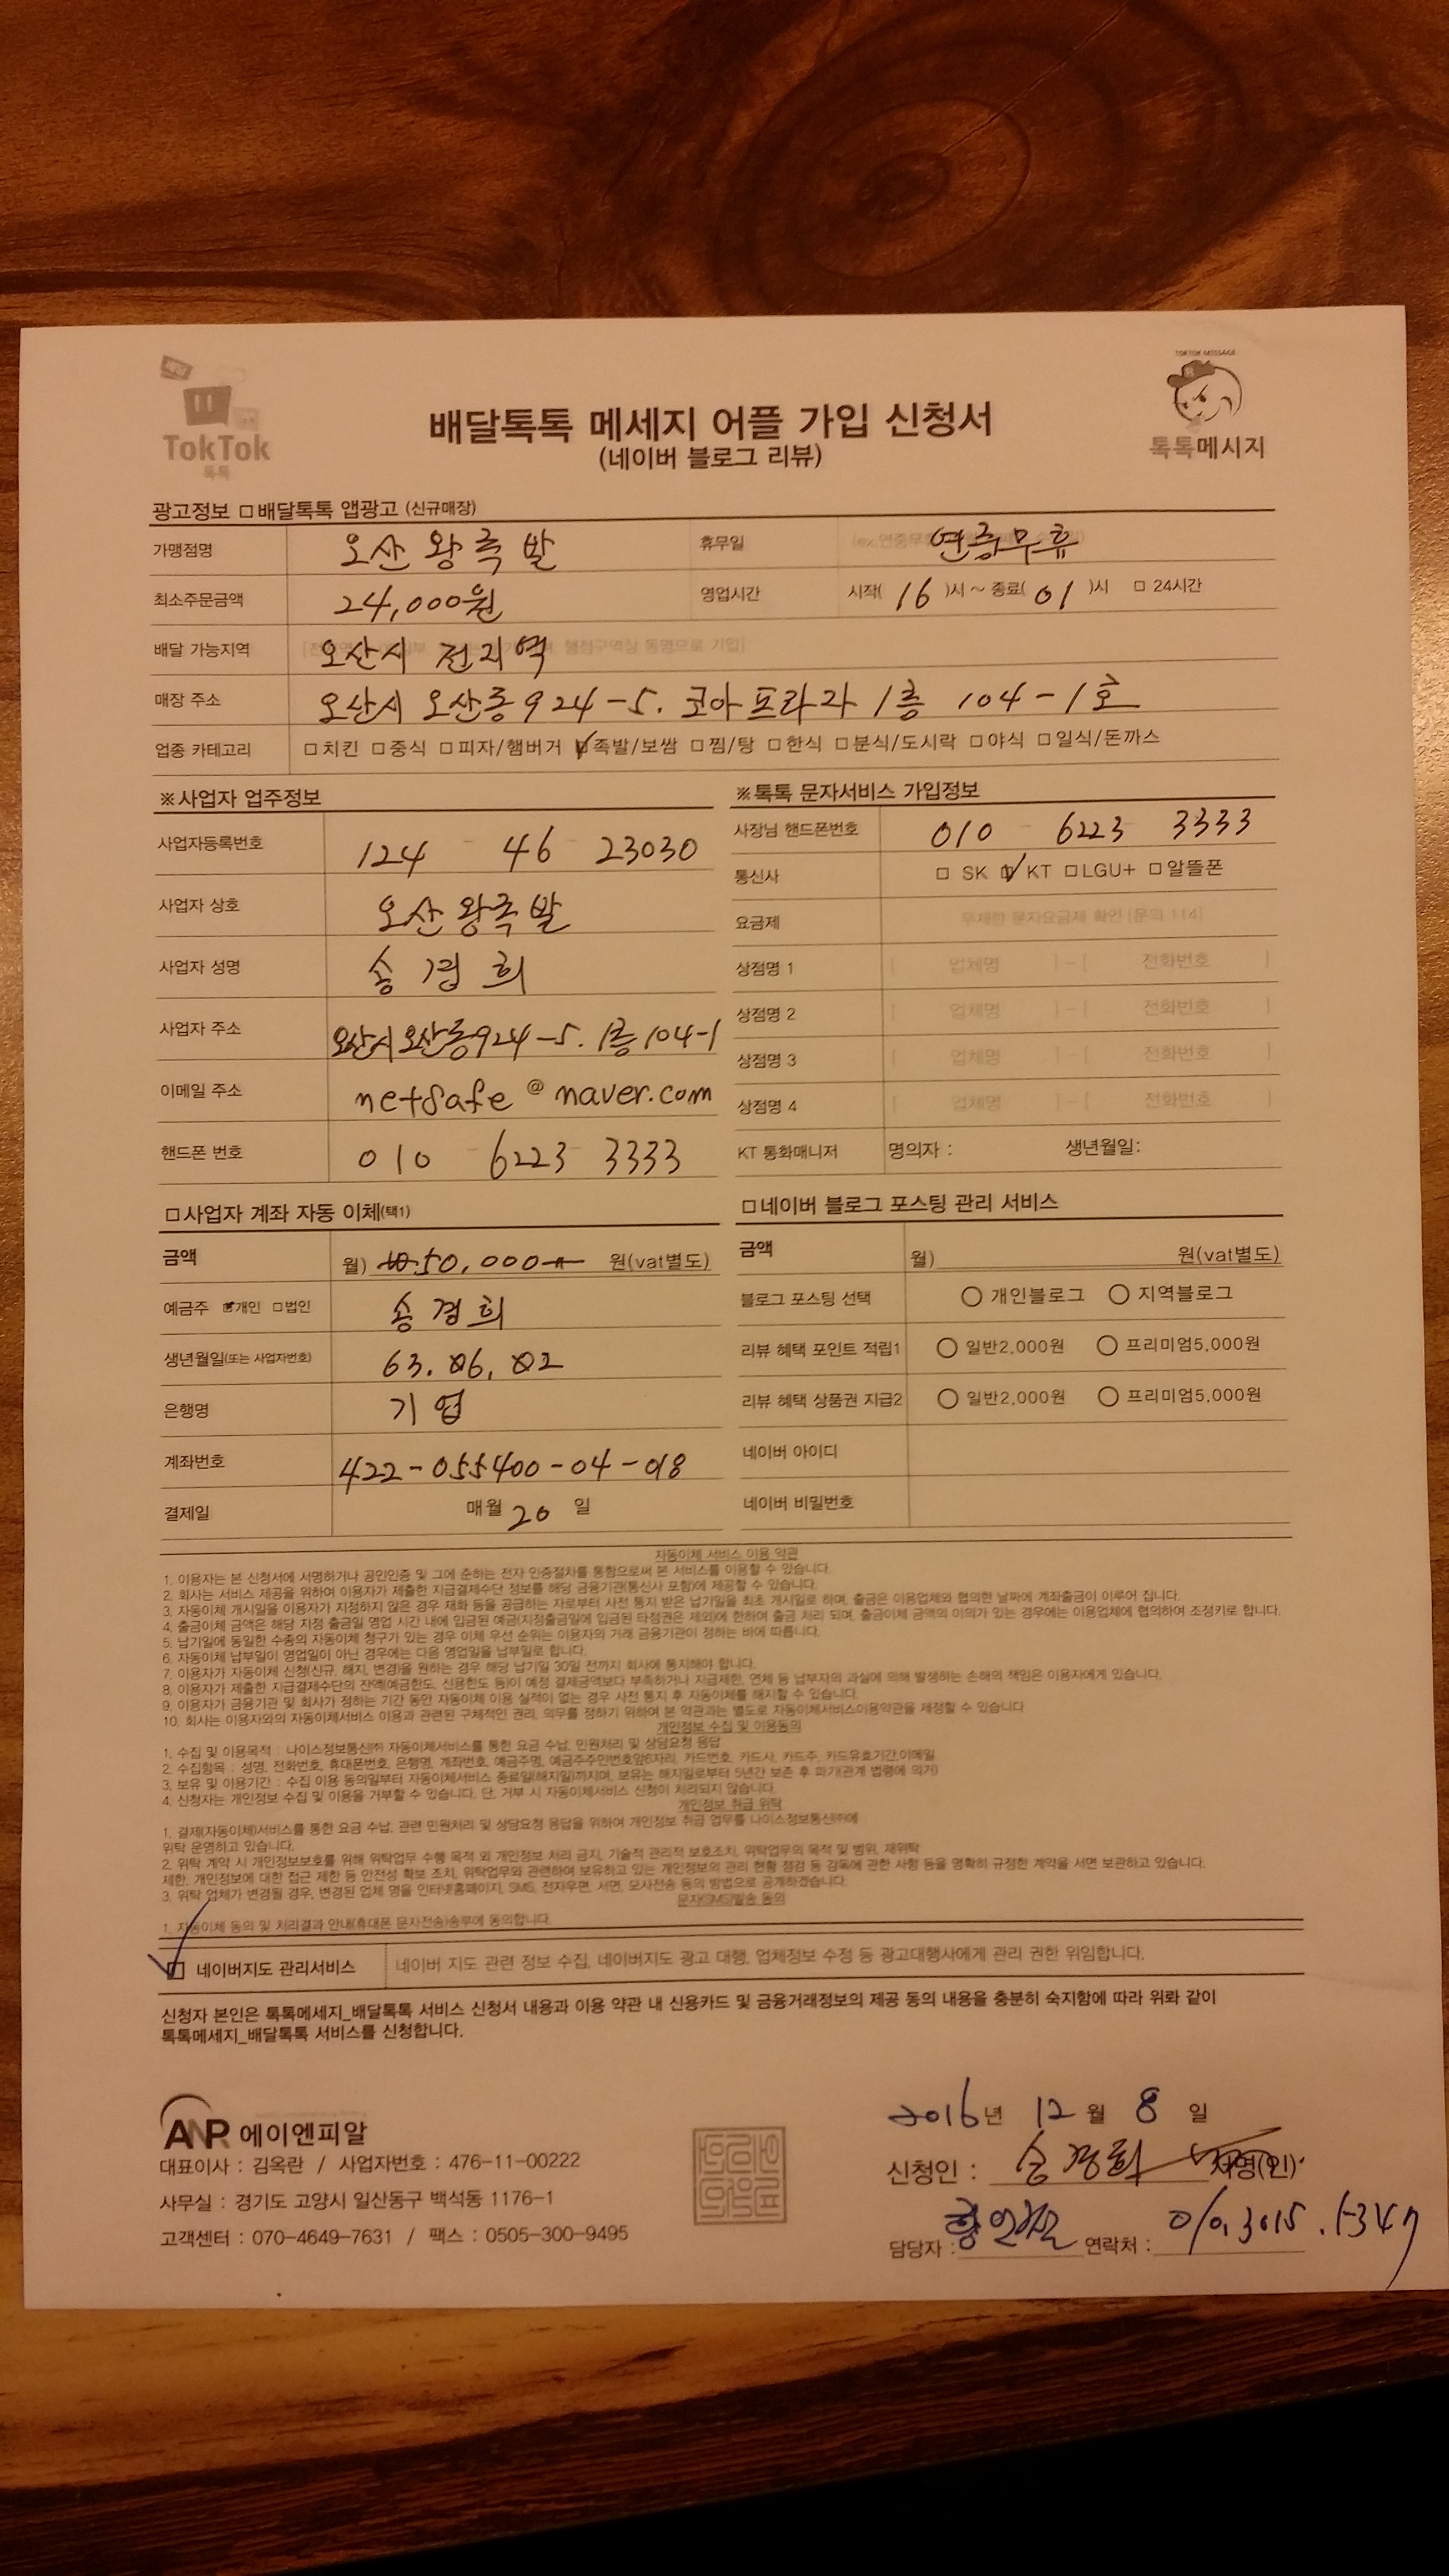 TokTok
톡톡
배달톡톡 메세지 어플 가입 신청서
(네이버 블로그 리뷰)
TOKTOK MESSAGE
톡톡메시지
광고정보 □ 배달톡톡 앱광고 (신규매장)
가맹점명 오산왕족발 휴무일 연중무휴
최소주문금액 24,000원 영업시간 시작( 16 )시 ~ 종료( 01 )시 □ 24시간
배달 가능지역 오산시 전지역
매장 주소 오산시 오산동 924-5. 코아프라자 1층 104-1호
업종 카테고리 □치킨 □중식 □피자/햄버거 ☑족발/보쌈 □찜/탕 □한식 □분식/도시락 □야식 □일식/돈까스
※사업자 업주정보
사업자등록번호 124 - 46 - 23030
사업자 상호 오산왕족발
사업자 성명 송경희
사업자 주소 오산시 오산동 924-5. 1층 104-1
이메일 주소 netsafe @ naver.com
핸드폰 번호 010 - 6223 3333
※톡톡 문자서비스 가입정보
사장님 핸드폰번호 010 - 6223 3333
통신사 □ SK ☑ KT □LGU+ □알뜰폰
요금제 무제한 문자요금제 확인 (문의 114)
상점명 1 [ 업체명 ] - [ 전화번호 ]
상점명 2 [ 업체명 ] - [ 전화번호 ]
상점명 3 [ 업체명 ] - [ 전화번호 ]
상점명 4 [ 업체명 ] - [ 전화번호 ]
KT 통화매니저 명의자 : 생년월일:
□사업자 계좌 자동 이체(택1)
금액 월) 50,000 원(vat별도)
예금주 ☑개인 □법인 송경희
생년월일(또는 사업자번호) 63. 06. 02
은행명 기업
계좌번호 422-055400-04-018
결제일 매월 20 일
□네이버 블로그 포스팅 관리 서비스
금액 월) 원(vat별도)
블로그 포스팅 선택 ○ 개인블로그 ○ 지역블로그
리뷰 혜택 포인트 적립1 ○ 일반2,000원 ○ 프리미엄5,000원
리뷰 혜택 상품권 지급2 ○ 일반2,000원 ○ 프리미엄5,000원
네이버 아이디
네이버 비밀번호
자동이체 서비스 이용 약관
1. 이용자는 본 신청서에 서명하거나 공인인증 및 그에 준하는 전자 인증절차를 통함으로써 본 서비스를 이용할 수 있습니다.
2. 회사는 서비스 제공을 위하여 이용자가 제출한 지급결제수단 정보를 해당 금융기관(통신사 포함)에 제공할 수 있습니다.
3. 자동이체 개시일을 이용자가 지정하지 않은 경우 재화 등을 공급하는 자로부터 사전 통지 받은 납기일을 최초 개시일로 하며, 출금은 이용업체와 협의한 날짜에 계좌출금이 이루어 집니다.
4. 출금이체 금액은 해당 지정 출금일 영업 시간 내에 입금된 예금(지정출금일에 입금된 타점권은 제외)에 한하여 출금 처리 되며, 출금이체 금액의 이의가 있는 경우에는 이용업체에 협의하여 조정키로 합니다.
5. 납기일에 동일한 수종의 자동이체 청구가 있는 경우 이체 우선 순위는 이용자의 거래 금융기관이 정하는 바에 따릅니다.
6. 자동이체 납부일이 영업일이 아닌 경우에는 다음 영업일을 납부일로 합니다.
7. 이용자가 자동이체 신청(신규, 해지, 변경)을 원하는 경우 해당 납기일 30일 전까지 회사에 통지해야 합니다.
8. 이용자가 제출한 지급결제수단의 잔액(예금한도, 신용한도 등)이 예정 결제금액보다 부족하거나 지급제한, 연체 등 납부자의 과실에 의해 발생하는 손해의 책임은 이용자에게 있습니다.
9. 이용자가 금융기관 및 회사가 정하는 기간 동안 자동이체 이용 실적이 없는 경우 사전 통지 후 자동이체를 해지할 수 있습니다.
10. 회사는 이용자와의 자동이체서비스 이용과 관련된 구체적인 권리, 의무를 정하기 위하여 본 약관과는 별도로 자동이체서비스이용약관을 제정할 수 있습니다
개인정보 수집 및 이용동의
1. 수집 및 이용목적 : 나이스정보통신㈜ 자동이체서비스를 통한 요금 수납, 민원처리 및 상담요청 응답
2. 수집항목 : 성명, 전화번호, 휴대폰번호, 은행명, 계좌번호, 예금주명, 예금주주민번호앞6자리, 카드번호, 카드사, 카드주, 카드유효기간,이메일
3. 보유 및 이용기간 : 수집 이용 동의일부터 자동이체서비스 종료일(해지일)까지며, 보유는 해지일로부터 5년간 보존 후 파기(관계 법령에 의거)
4. 신청자는 개인정보 수집 및 이용을 거부할 수 있습니다. 단, 거부 시 자동이체서비스 신청이 처리되지 않습니다.
개인정보 취급 위탁
1. 결제(자동이체)서비스를 통한 요금 수납, 관련 민원처리 및 상담요청 응답을 위하여 개인정보 취급 업무를 나이스정보통신㈜에
위탁 운영하고 있습니다.
2. 위탁 계약 시 개인정보보호를 위해 위탁업무 수행 목적 외 개인정보 처리 금지, 기술적 관리적 보호조치, 위탁업무의 목적 및 범위, 재위탁
제한, 개인정보에 대한 접근 제한 등 안전성 확보 조치, 위탁업무와 관련하여 보유하고 있는 개인정보의 관리 현황 점검 등 감독에 관한 사항 등을 명확히 규정한 계약을 서면 보관하고 있습니다.
3. 위탁 업체가 변경될 경우, 변경된 업체 명을 인터넷홈페이지, SMS, 전자우편, 서면, 모사전송 등의 방법으로 공개하겠습니다.
문자(SMS)발송 동의
1. 자동이체 동의 및 처리결과 안내(휴대폰 문자전송)송부에 동의합니다.
☑ 네이버지도 관리서비스 네이버 지도 관련 정보 수집, 네이버지도 광고 대행, 업체정보 수정 등 광고대행사에게 관리 권한 위임합니다.
신청자 본인은 톡톡메세지_배달톡톡 서비스 신청서 내용과 이용 약관 내 신용카드 및 금융거래정보의 제공 동의 내용을 충분히 숙지함에 따라 위와 같이
톡톡메세지_배달톡톡 서비스를 신청합니다.
2016년 12월 8일
신청인 : 송경희 서명(인)
담당자 : 연락처 : 010.3015.5347
ANR 에이엔피알
대표이사 : 김옥란 / 사업자번호 : 476-11-00222
사무실 : 경기도 고양시 일산동구 백석동 1176-1
고객센터 : 070-4649-7631 / 팩스 : 0505-300-9495